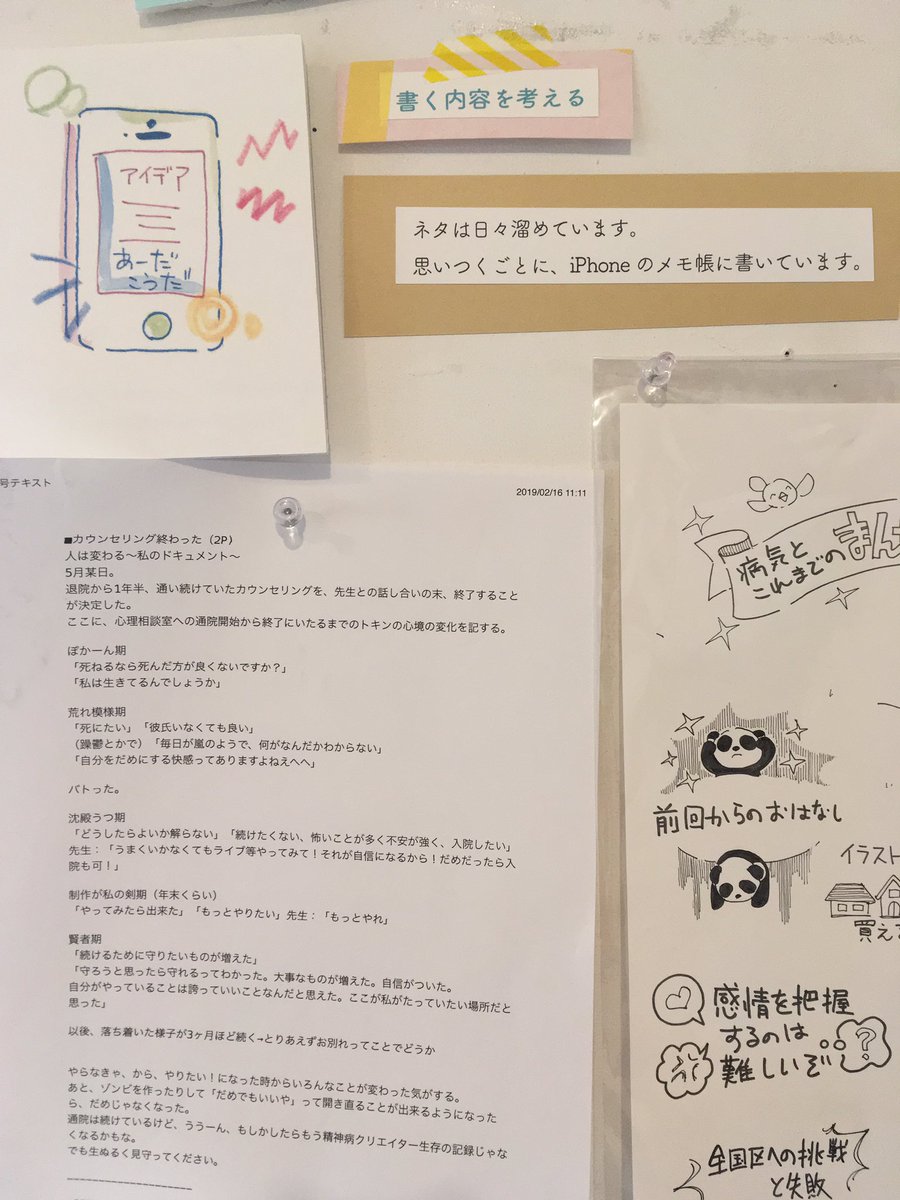 書く内容を考える
アイデア
あーだ
こうだ
ネタは日々溜めています。
思いつくごとに、iPhone のメモ帳に書いています。
号テキスト
2019/02/16 11:11
■カウンセリング終わった（2P）
人は変わる〜私のドキュメント〜
5月某日。
退院から1年半、通い続けていたカウンセリングを、先生との話し合いの末、終了すること
が決定した。
ここに、心理相談室への通院開始から終了にいたるまでのトキンの心境の変化を記する。
ぽかーん期
「死ねるなら死んだ方が良くないですか？」
「私は生きてるんでしょうか」
荒れ模様期
「死にたい」「彼氏いなくても良い」
（躁鬱とかで）「毎日が嵐のようで、何がなんだかわからない」
「自分をだめにする快感ってありますよねえへへ」
バトった。
沈殿うつ期
「どうしたらよいか解らない」「続けたくない、怖いことが多く不安が強く、入院したい」
先生：「うまくいかなくてもライブ等やってみて！それが自信になるから！だめだったら入
院も可！」
制作が私の剣期（年末くらい）
「やってみたら出来た」「もっとやりたい」先生：「もっとやれ」
賢者期
「続けるために守りたいものが増えた」
「守ろうと思ったら守れるってわかった。大事なものが増えた。自信がついた。
自分がやっていることは誇っていいことなんだと思えた。ここが私がたっていたい場所だと
思った」
以後、落ち着いた様子が3ヶ月ほど続く→とりあえずお別れってことでどうか
やらなきゃ、から、やりたい！になった時からいろんなことが変わった気がする。
あと、ゾンビを作ったりして「だめでもいいや」って開き直ることが出来るようになった
ら、だめじゃなくなった。
通院は続けているけど、ううーん、もしかしたらもう精神病クリエイター生存の記録じゃな
くなるかもな。
でも生ぬるく見守ってください。
--------------------
病気と
これまでの
まん
前回からのおはなし
イラスト
買え
感情を把握
するのは
難しいぞ
?
全国区への挑戦
と失敗